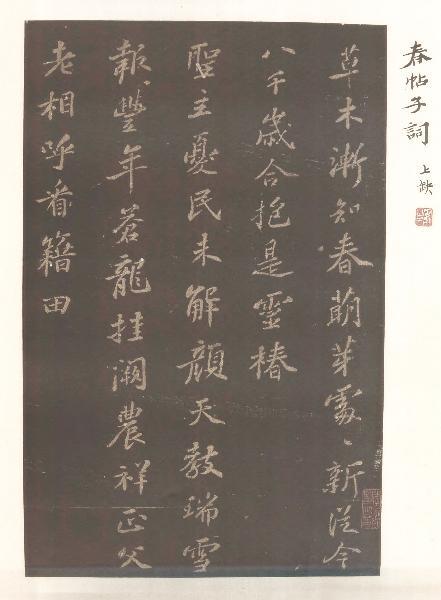 春帖子詞 上缺
草木漸知春萠芽處〻新從今
八千歲合抱是靈椿
聖主憂民未解顏天教瑞雪
報豐年蒼龍挂闕農祥正父
老相呼看籍田